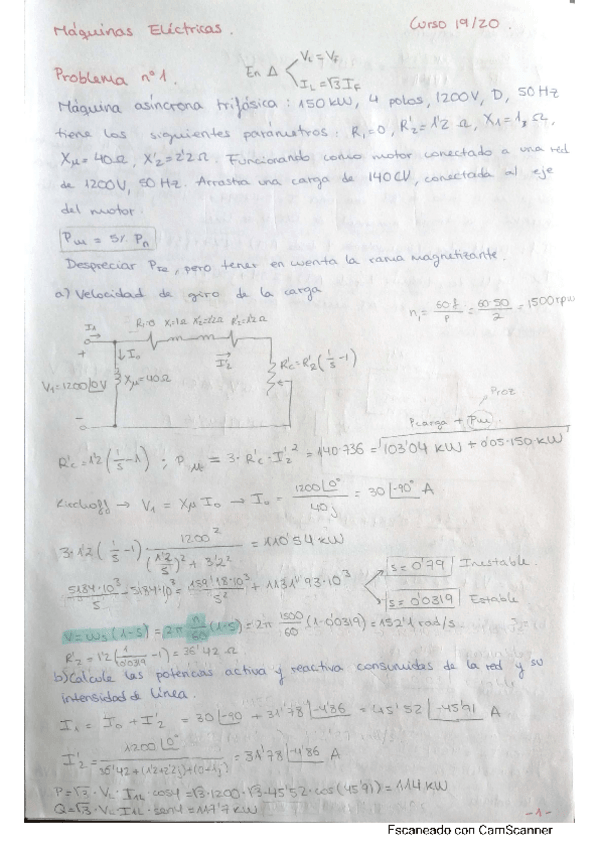 Máquinas Eléctricas. Curso 19/20.
Problema nº 1. En Δ VL = VF
IL = √3 IF
Máquina asíncrona trifásica: 150 kW, 4 polos, 1200V, D, 50 Hz
tiene los siguientes parámetros: R1=0, R'2=1'2 Ω, X1=1, Ω,
Xμ=40Ω, X'2=2'2Ω. Funcionando como motor conectado a una red
de 1200V, 50 Hz. Arrastra una carga de 140CV, conectada al eje
del motor.
Pm = 5% Pn
Despreciar PFe, pero tener en cuenta la rama magnetizante.
a) Velocidad de giro de la carga
n1 = 60 f / p = 60·50 / 2 = 1500 rpm
I1 R1=0 X1=1Ω X'2=2'2Ω R'2=1'2Ω
+ ↓ I0 I'2 R'c=R'2(1/s -1)
V1=1200|0 V Xμ=40Ω
Proz
Pcarga + Pm
R'c=1'2(1/s -1) ; P = 3·R'c·I'2² = 140·736 = 103'04 kW + 0'05·150·kW
Kirchoff → V1 = Xμ I0 → I0 = 1200|0° / 40j = 30|-90° A
3·1'2(1/s -1)· 1200² / ((1'2/s)² + 3'2²) = 110'54 kW
5184·10³/s - 5184·10³ = 159'18·10³/s² + 1131'93·10³
s = 0'79 Inestable.
s = 0'0319 Estable
V = ωs(1-s) = 2π n/60 (1-s) = 2π 1500/60 (1-0'0319) = 152'1 rad/s
R'2 = 1'2(1/0'0319 -1) = 36'42 Ω
b) Calcule las potencias activa y reactiva consumidas de la red y su
intensidad de línea.
I1 = I0 + I'2 = 30|-90 + 31'78|-4'86 = 45'52|-45'91 A
I'2 = 1200|0° / 36'42+(1'2+2'2j)+(0+1j) = 31'78|-4'86 A
P=√3·VL·I1L·cosφ=√3·1200·√3·45'52·cos(45'91)=114 kW
Q=√3·VL·I1L·senφ=117'7 kW
-1-
Escaneado con CamScanner